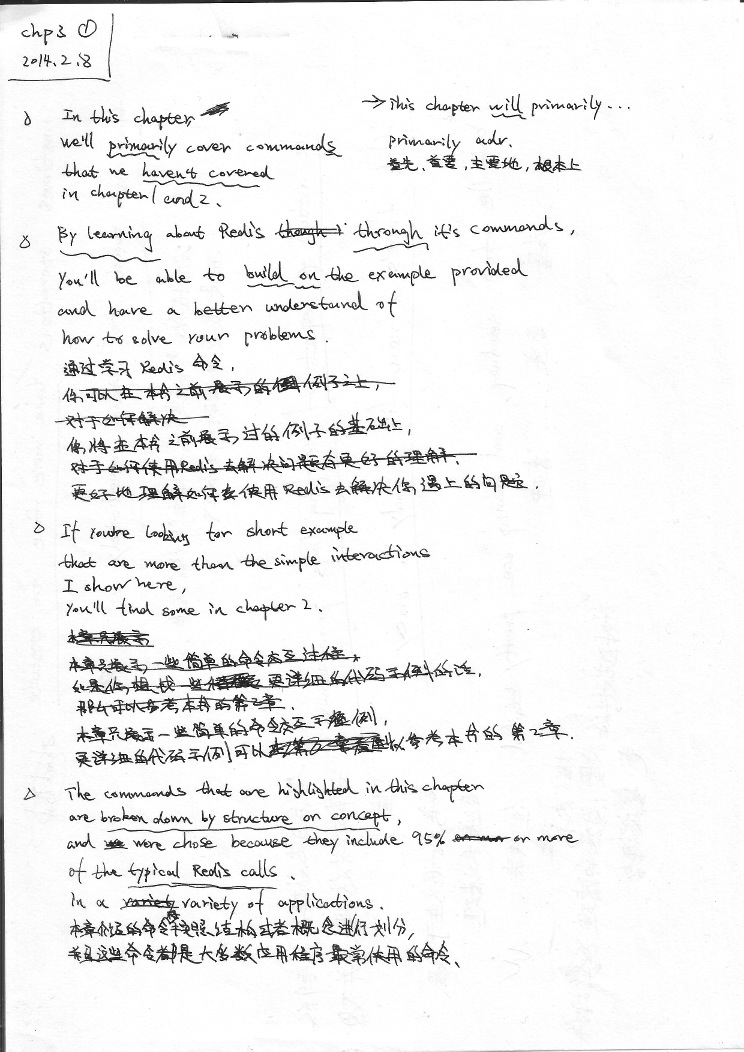 chp3 ①
2014.2.8
In this chapter,
we'll primarily cover commands
that we haven't covered
in chapter 1 and 2.
→ This chapter will primarily...
primarily adv.
首先、首要,主要地,根本上
By learning about Redis through it's commands,
You'll be able to build on the example provided
and have a better understand of
how to solve your problems.
通过学习 Redis 命令,
你可以在本书之前展示的例子之上,
对于如何解决
你将在本书之前展示过的例子的基础上,
对于如何使用Redis去解决问题有更好的理解.
更好地理解如何去使用Redis去解决你遇上的问题.
If you're looking for short example
that are more than the simple interactions
I show here,
You'll find some in chapter 2.
本章只展示
本章只展示一些简单的命令交互过程,
如果你想找一些更详细的代码示例的话,
那么可以参考本书的第2章.
本章只展示一些简单的命令交互示例,
更详细的代码示例可以参考本书的第2章.
The commands that are highlighted in this chapter
are broken down by structure or concept,
and were chose because they include 95% or more
of the typical Redis calls.
In a variety variety of applications.
本章介绍的命令按照结构或者概念进行划分,
并且这些命令都是大多数应用程序最常使用的命令、